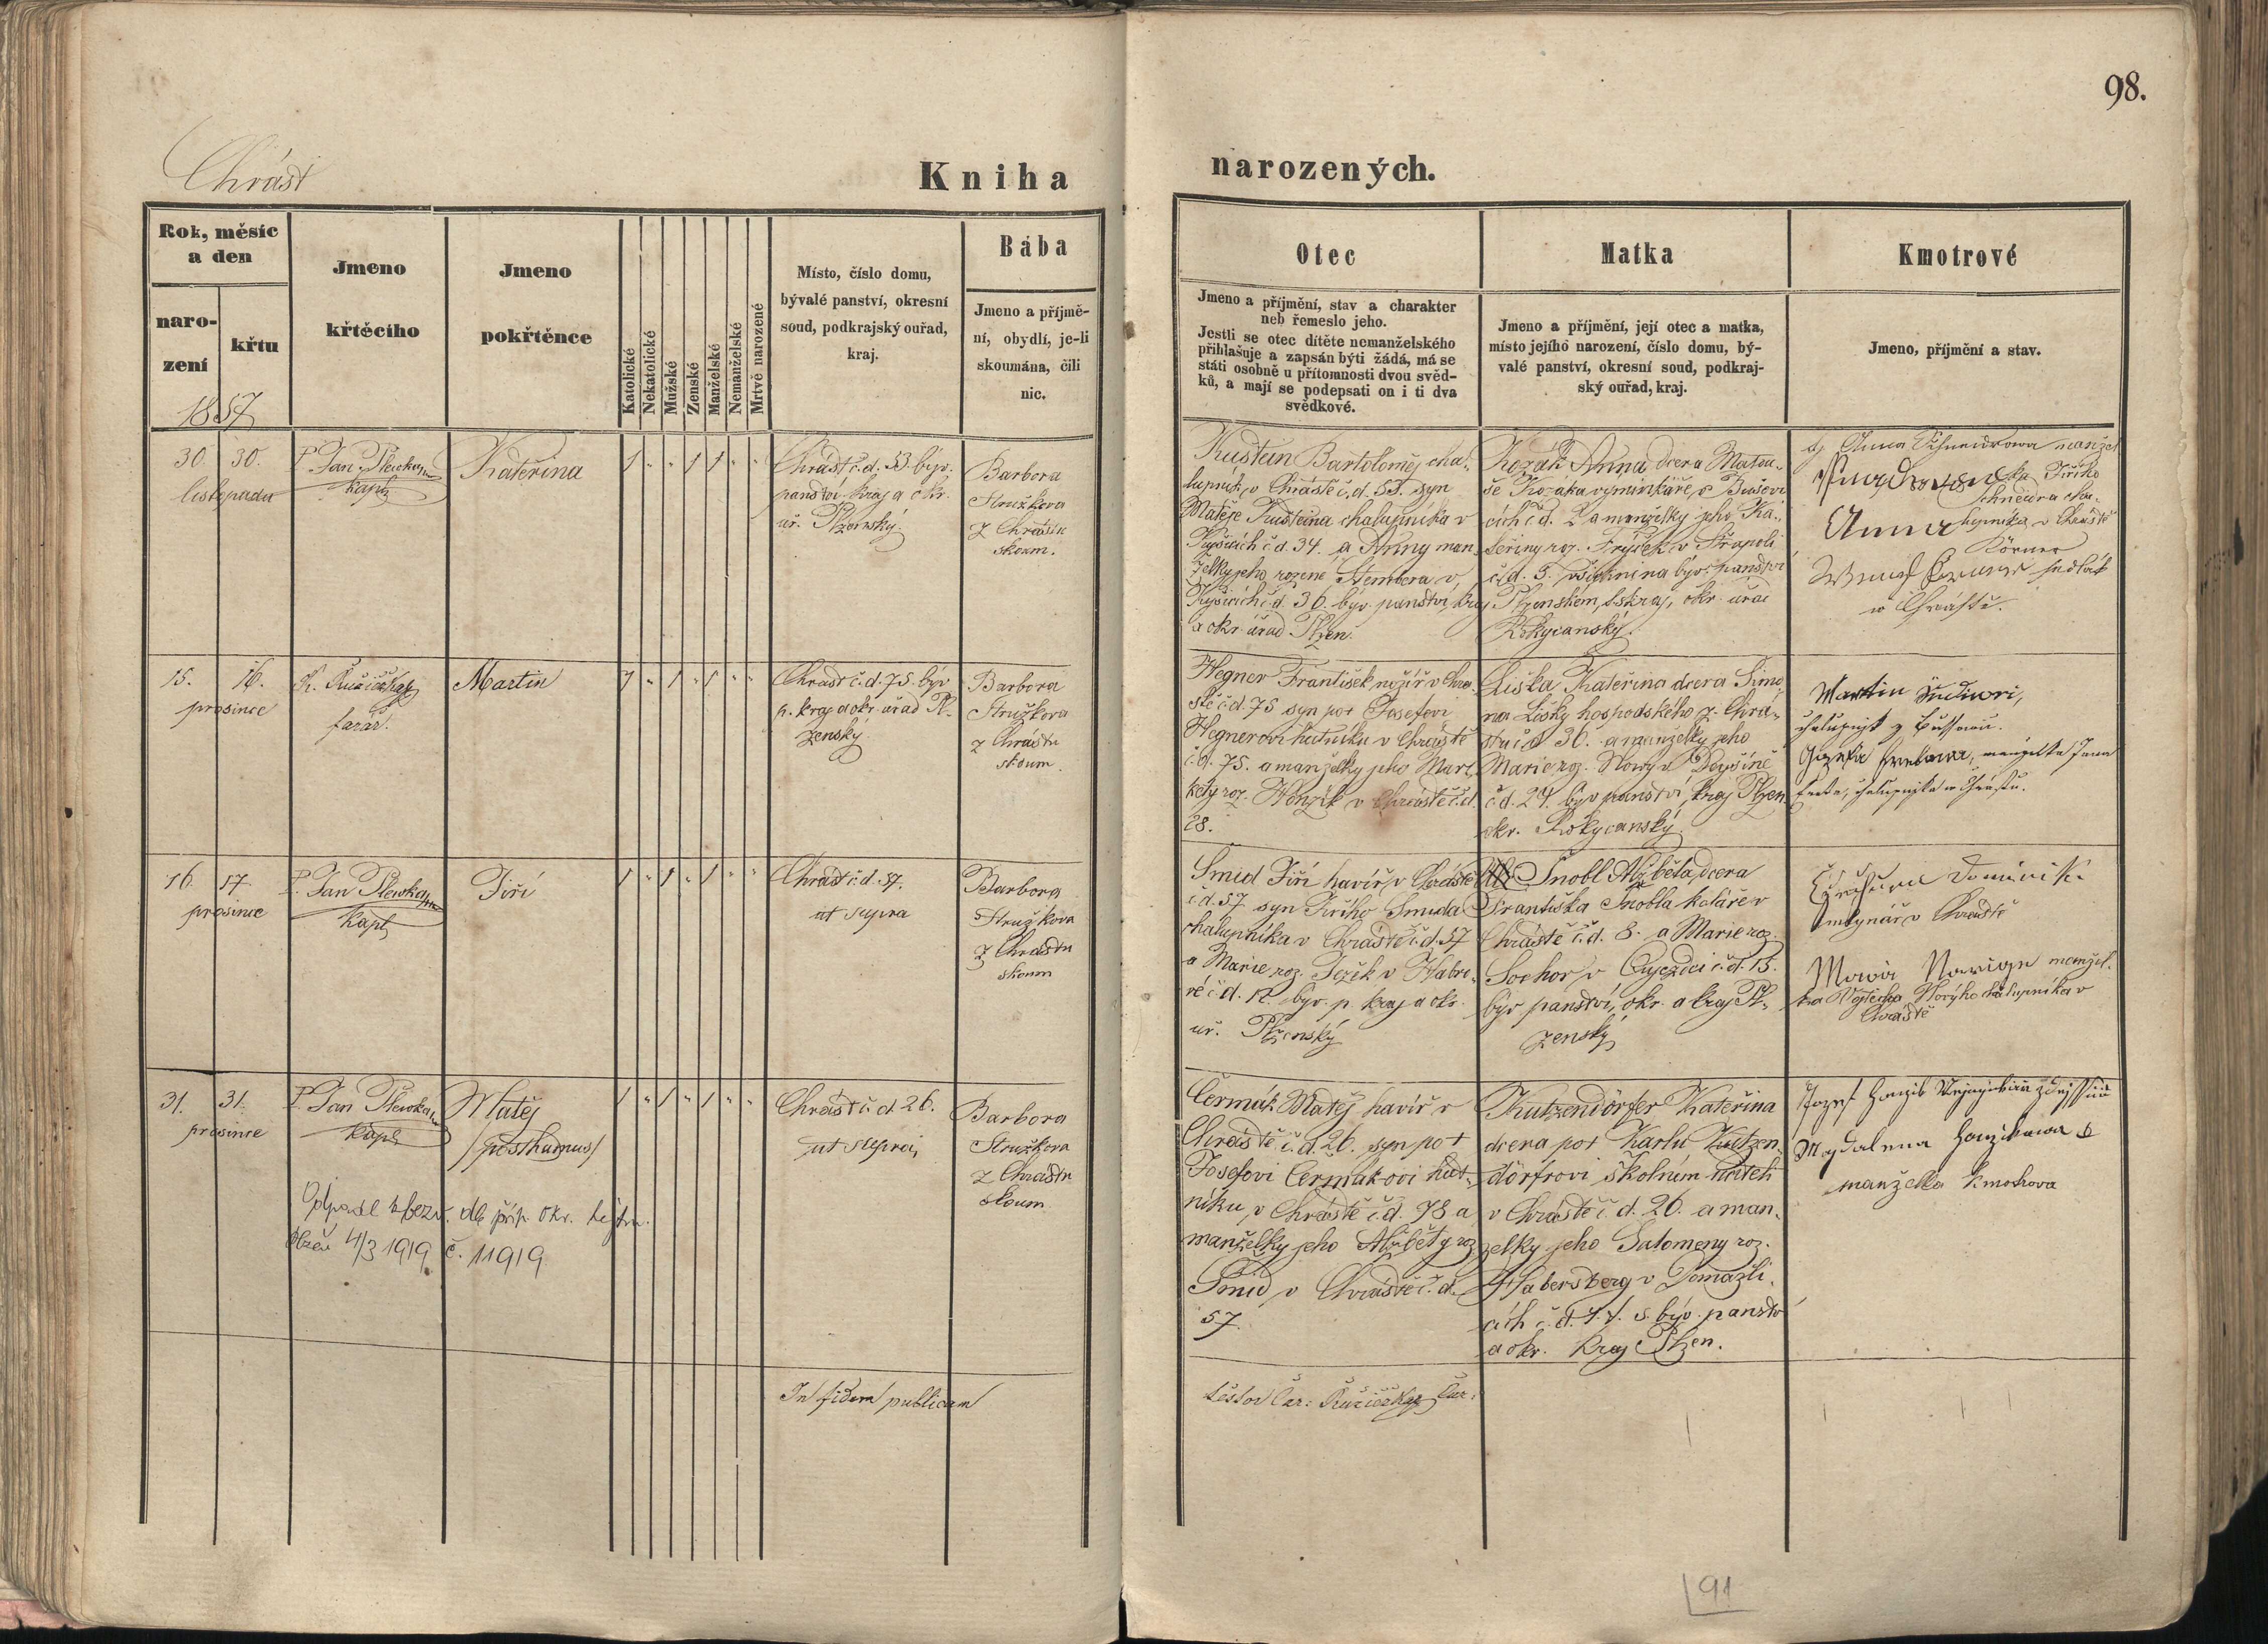 98.
Chrást
Kniha narozených.
Rok, měsíc
a den
naro-
zení
křtu
1857
Jmeno
křtěcího
Jmeno
pokřtěnce
Katolické
Nekatolické
Mužské
Ženské
Manželské
Nemanželské
Mrtvě narozené
Místo, číslo domu,
bývalé panství, okresní
soud, podkrajský ouřad,
kraj.
Bába
Jmeno a příjmě-
ní, obydlí, je-li
skoumána, čili
nic.
Otec
Jmeno a příjmění, stav a charakter
neb řemeslo jeho.
Jestli se otec dítěte nemanželského
přihlašuje a zapsán býti žádá, má se
státi osobně u přítomnosti dvou svěd-
ků, a mají se podepsati on i ti dva
svědkové.
Matka
Jmeno a příjmění, její otec a matka,
místo jejího narození, číslo domu, bý-
valé panství, okresní soud, podkraj-
ský ouřad, kraj.
Kmotrové
Jmeno, příjmění a stav.
30. 30.
listopadu
P. Jan Plewka
kapl.
Kateřina
1 " " 1 1 " "
Chrást č.d. 53. býv.
panství kraj a okr.
úř. Plzenský.
Barbora
Stružkova
z Chrástu
skoum.
Kustein Bartoloměj cha-
lupník v Chrástě č.d. 53. syn
Matěje Kusteina chalupníka v
Kyšicích č.d. 34. a Anny man-
želky jeho rozené Stembera v
Kyšicích č.d. 36. býv. panství, kraj
a okr. úřad Plzen.
Kozák Anna dcera Matou-
še Kozáka výminkáře v Bušovi-
cích č.d. 2 a manželky jeho Ka-
teřiny roz. Fryček v Střapoli
č.d. 3. všichni na býv. panství
Plzenském, kraj, okr. úřad
Rokycanský.
Anna Schneidrowa manžel
ka Jiřího
Schneidra cha-
Anna lupníka v Chrástě
Körner
sedlák
w Chrástě.
15. 16.
prosince
K. Ružička
farář.
Martin
1 " 1 " 1 " "
Chrást č.d. 75. býv
p. kraj a okr. úřad Pl-
zenský.
Barbora
Stružkova
z Chrástu
skoum.
Hegner František, nožíř v Chrá-
stě č.d. 75 syn po † Josefovi
Hegnerovi hutníku v Chrástě
č.d. 75. a manželky jeho Mark-
kety roz. Honzík v Chrástě č.d.
28.
Liška Kateřina dcera Šimo-
na Lišky hospodského z Chrá-
stu č.d. 36. a manželky jeho
Marie roz. Nowý v Dejšině
č.d. 24. býv panství, kraj Plzen
okr. Rokycanský.
Martin
manželka Jana
16. 17.
prosince
P. Jan Plewka
kapl.
Jiří
1 " 1 " 1 " "
Chrást č.d. 57.
ut supra
Barbora
Stružkova
z Chrástu
skoum
Šmid Jiří havíř v Chrástě
č.d. 57 syn Jiřího Šmida
chalupníka v Chrástě č.d. 57
a Marie roz. Ježek v Habro-
vé č.d. 12. býv. p. kraj a okr.
úř. Plzenský
Šnobl Alžběta, dcera
Františka Šnobla koláře v
Chrástě č.d. 8. a Marie roz.
Sochor v Oujezdci č.d. 15.
býv panství, okr. a kraj Pl-
zenský
Dominik
mlynář v Chrástě
manžel-
ka Vojtěcha Nového chalupníka v
Chrástě
31. 31.
prosince
P. Jan Plewka
kapl.
Matěj
/posthumus/
1 " 1 " 1 " "
Chrást č.d. 26.
ut supra
Barbora
Stružkova
z Chrástu
skoum.
Odpadl k bezv. dle příp. okr. hejtm.
Plzeň 4/3 1919 č. 11919
Čermák Matěj havíř v
Chrástě č.d. 26. syn po †
Josefovi Čermákovi hut-
níku v Chrástě č.d. 78 a
manželky jeho Alžběty roz
Šmid v Chrástě č.d.
57.
Kutzendörfer Kateřina
dcera po † Karlu Kutzen-
dörfrovi školním učiteli
v Chrástě č.d. 26. a man-
želky jeho Salomeny roz.
Habersberg v Domažli-
cích č.d. 44. s. býv. panství
a okr. kraj Plzen.
Jozef Honzik
Magdalena Honzikowa
manželka kmotrova
In fidem publicam
Růžička
91